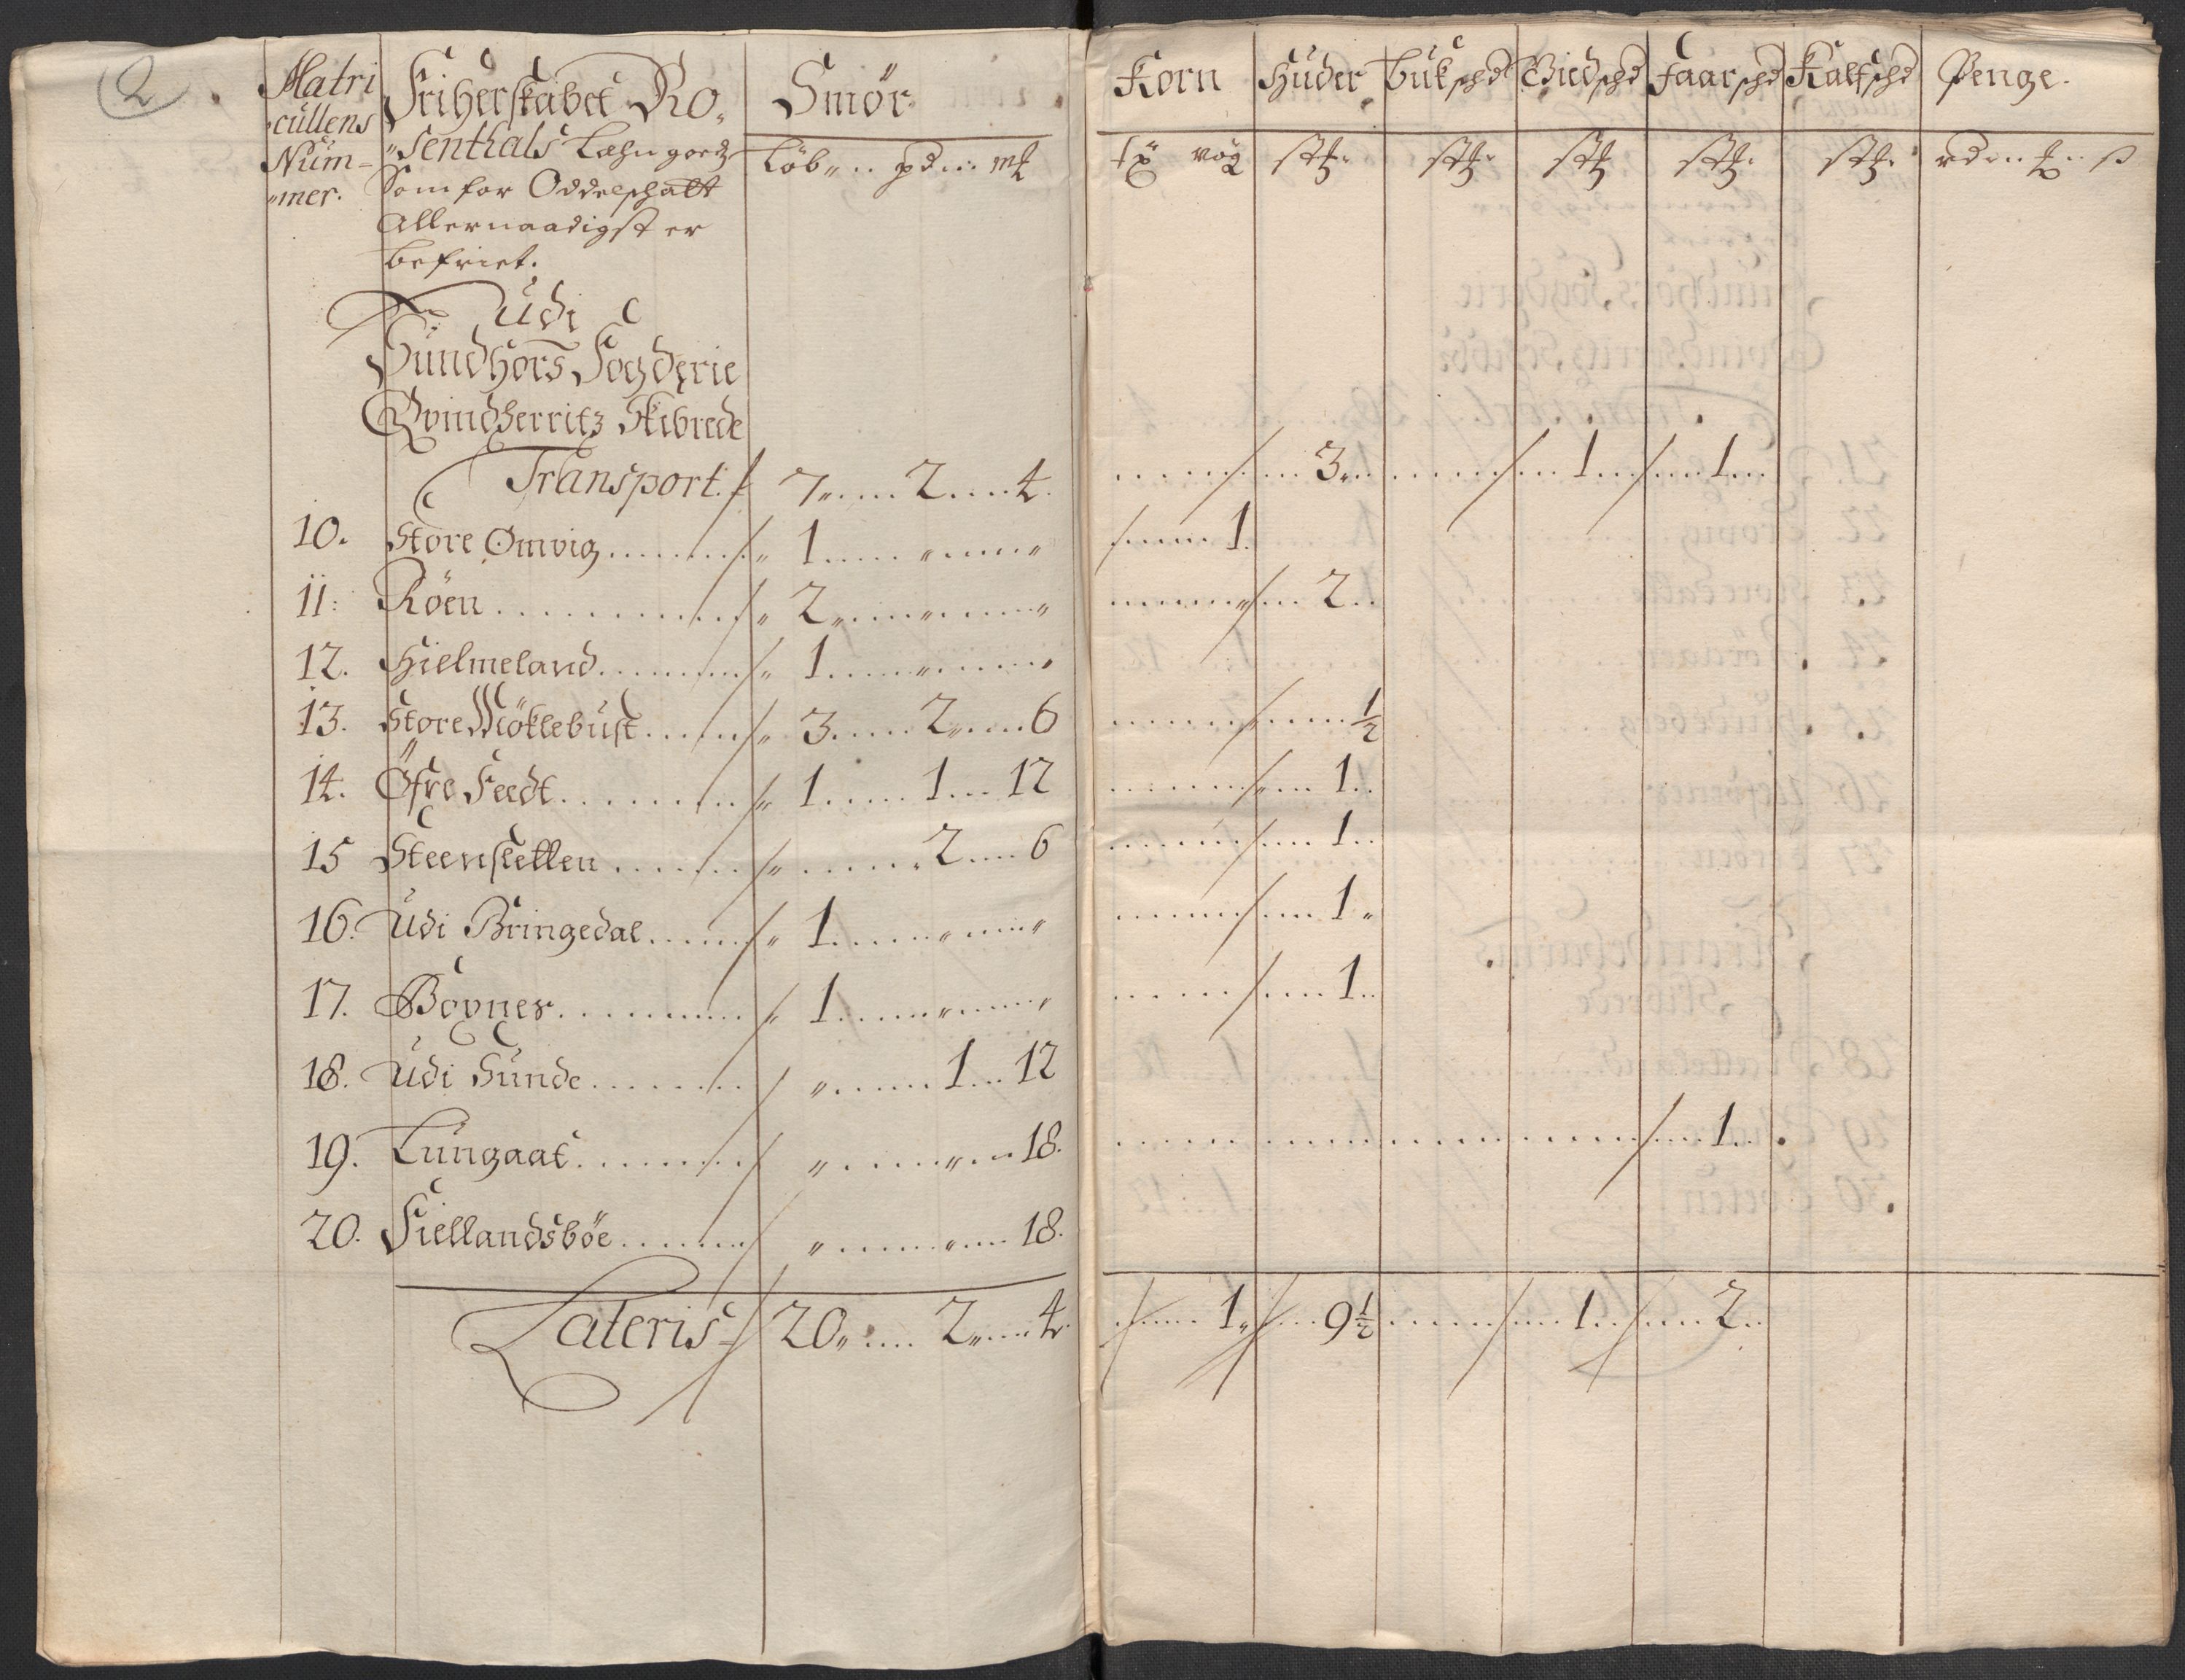 2
Matri
cullens
Num-
mer.
Friherskabet Ro-
senthals Læhn goedz
Som for Oddelschatt
Allernaadigst er
befriet.
Smör
Löb pd mk
Korn Huder Bukschd Giedschd Faarschd Kalfschd Penge.
vog
Udi
Sundhors Fogderie
Qvindherritz Skibrede
Transport. 7 2 4. 3 1 1
10. Store Omvig 1 " " 1.
11: Röen 2 " " 2
12. Hielmeland 1 " "
13. Store Möklebust 3 2 6 ½
14. Öfre Feedt 1 1 12 1
15 Steensletten 2 6 1
16. Udi Bringedal 1 " " 1
17. Bogner 1 " " 1
18. Udi Sunde " 1 12
19. Tungaat " " 18. 1
20. Fiellandsböe " " 18.
Lateris 20 2 4 1 9½ 1 2